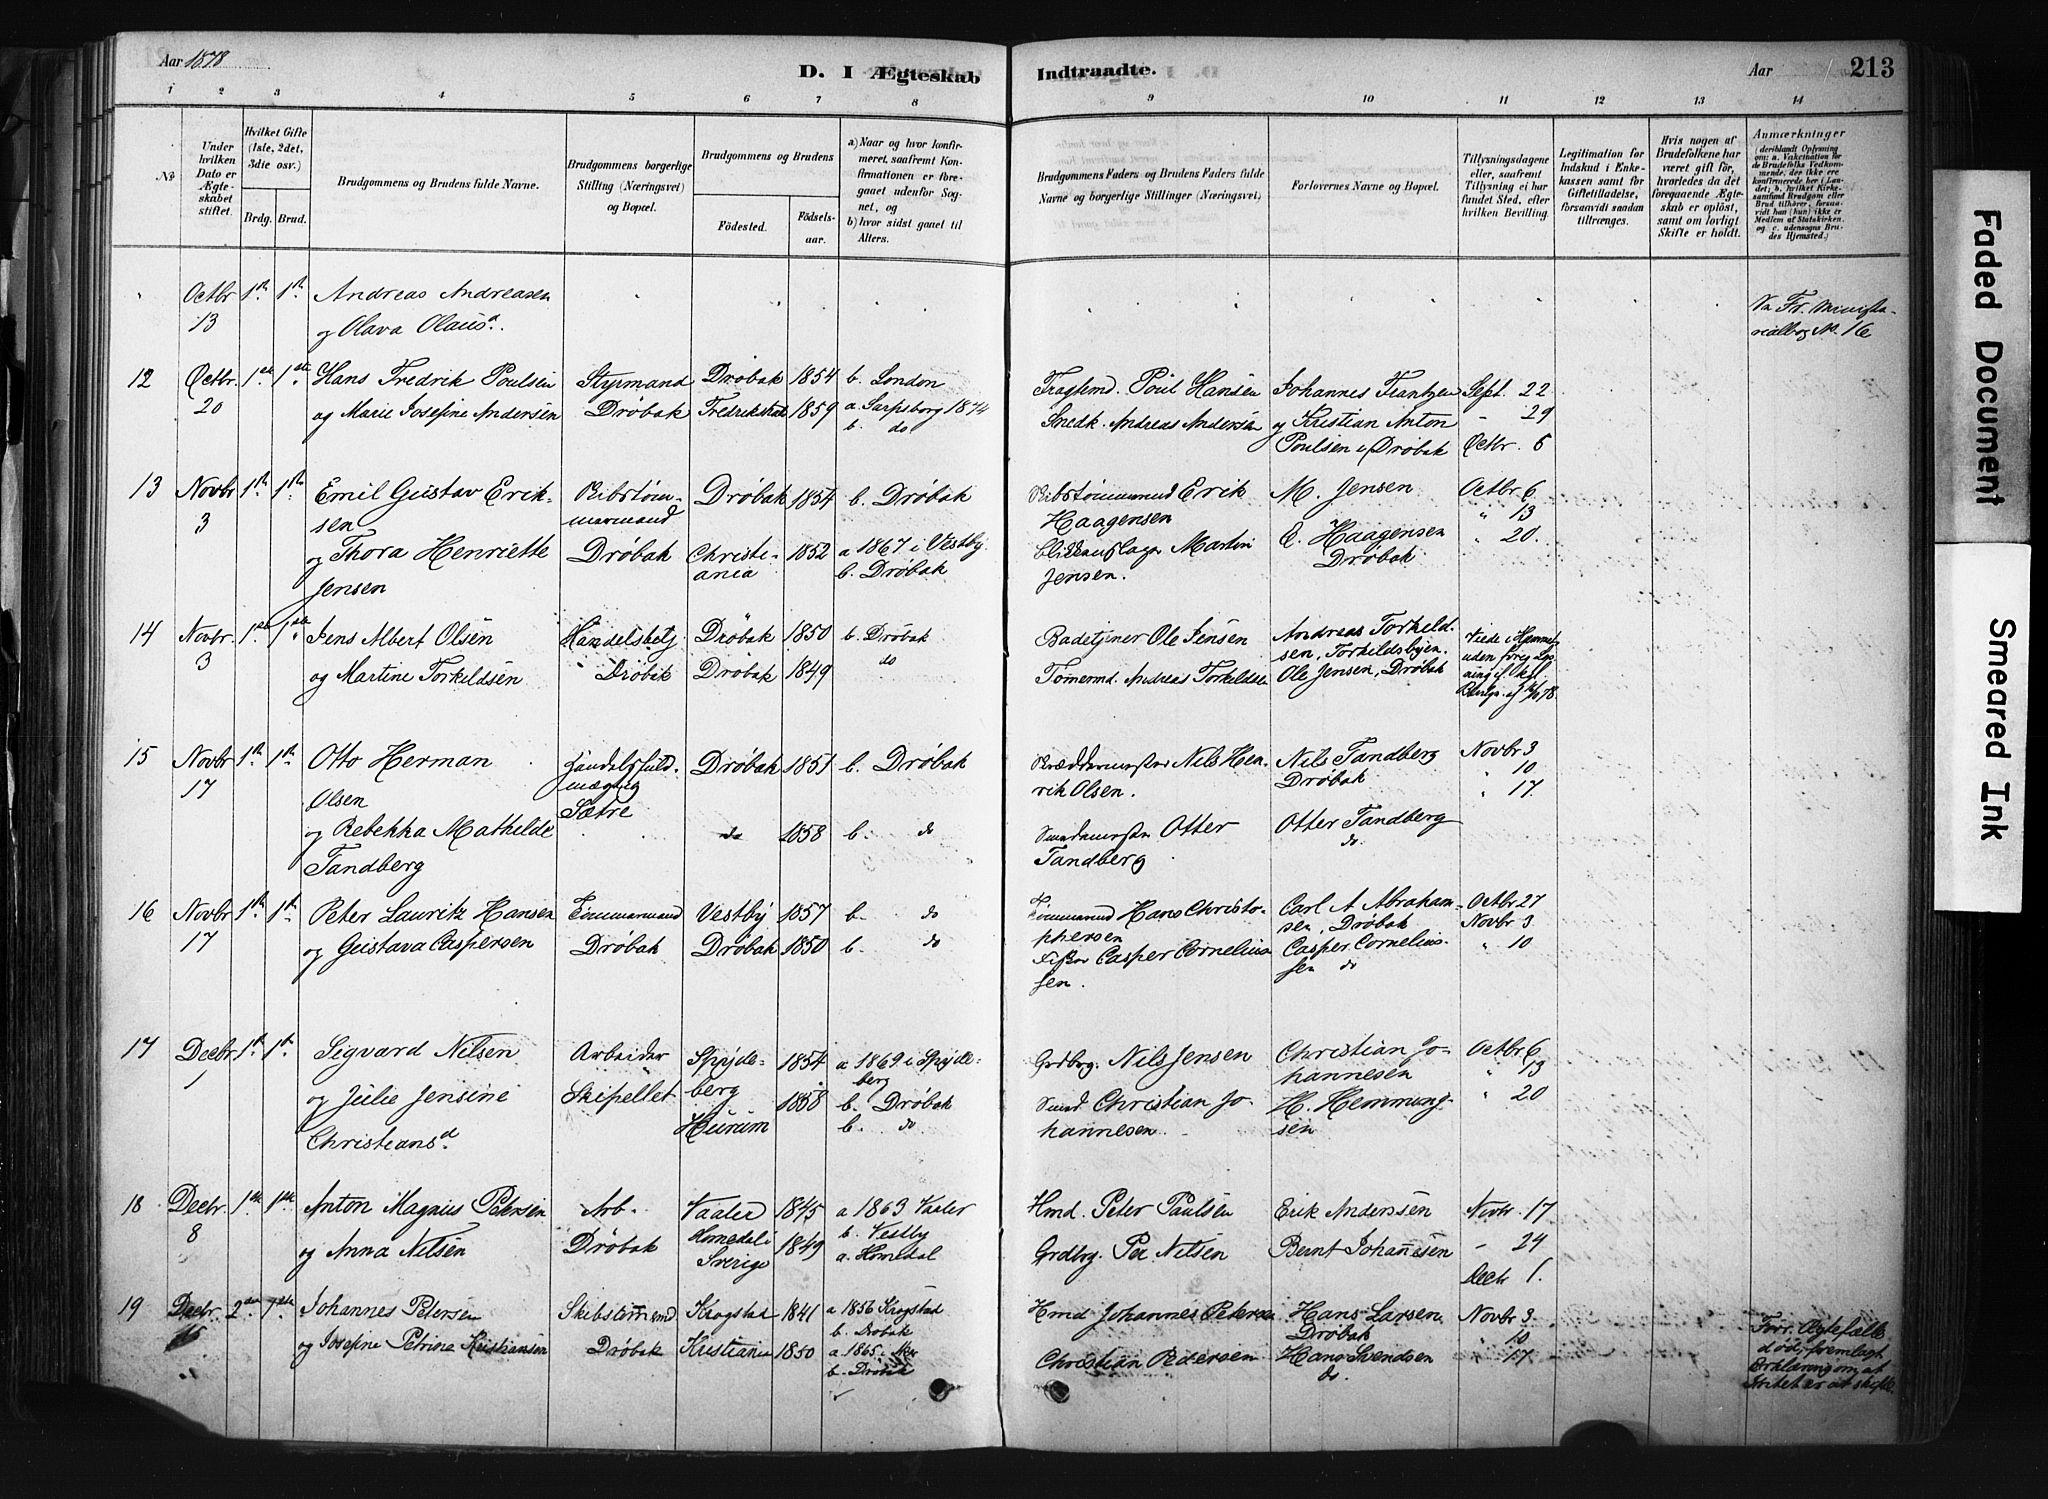 Aar 1878
D. I Ægteskab Indtraadte.
Aar 213
1 2 3 4 5 6 7 8 9 10 11 12 13 14
No
Under hvilken Dato er Ægteskabet stiftet.
Hvilket Gifte (1ste, 2det, 3die osv.)
Brdg. Brud.
Brudgommens og Brudens fulde Navne.
Brudgommens borgerlige Stilling (Næringsvei) og Bopæl.
Brudgommens og Brudens
Fødested. Fødselsaar.
a) Naar og hvor konfirmeret, saafremt Konfirmationen er foregaaet udenfor Sognet, og
b) hvor sidst gaaet til Alters.
Brudgommens Faders og Brudens Faders fulde Navne og borgerlige Stillinger (Næringsvei)
Forlovernes Navne og Bopæl.
Tillysningsdagene eller, saafremt Tillysning ei har fundet Sted, efter hvilken Bevilling.
Legitimation for Indskud i Enkekassen samt for Giftetilladelse, forsaavidt saadan tiltrænges.
Hvis nogen af Brudefolkene har været gift før, hvorledes da det foregaaende Ægteskab er opløst, samt om lovligt Skifte er holdt.
Anmærkninger
(deriblandt Oplysning om: a. Vakcination for de Brudefolks Vedkommende, der ikke ere konfirmerede her i Landet; b. hvilket Kirkesamfund Brudgom eller Brud tilhører, forsaavidt han (hun) ikke er Medlem af Statskirken, og c. udensogns Brudes Hjemsted.)
Octbr 13 1ste 1ste Andreas Andreasen
og Olava Olausd.
Fr. Ministe-
rialbog No. 16
12 Octbr. 20 1ste 1ste Hans Fredrik Poulsen Styrmand Drøbak 1854 b. London Fragtemd. Poul Hansen Johannes Frantzen Sept. 22
og Marie Josefine Andersen Drøbak Fredrikstad 1859 a Sarpsborg 1874 Snedk. Andreas Andersen og Kristian Anton - 29
b. do Poulsen i Drøbak Octbr. 6
13 Novbr 3 1ste 1ste Emil Gustav Erik- Drøbak 1854 b. Drøbak Erik M. Jensen Octbr 6
sen Haagensen " 13
og Thora Henriette Drøbak Christi- 1852 a 1867 i Vestby Martin E. Haagensen " 20
Jensen ania b. Drøbak Jensen. Drøbak
14 Novbr. 3 1ste 1ste Jens Albert Olsen Handelsbetj Drøbak 1850 b. Drøbak Badetjener Ole Jensen Andreas Torkild-
sen, Torkildsbyen.
og Martine Torkildsen Drøbak Drøbak 1849 do Tømermd. Andreas Torkildsen Ole Jensen, Drøbak
15 Novbr 17 1ste 1ste Otto Herman Handelsfuld- Drøbak 1851 b. Drøbak Nils Hen- Nils Tandberg Novbr 3
Olsen mægtig rik Olsen. Drøbak " 10
Sætre " 17
og Rebekka Mathilde do 1858 b. do Otter Otter Tandberg
Tandberg Tandberg do.
16 Novbr 17 1ste 1ste Peter Lauritz Hansen Tømmermand Vestby 1857 b. do Tømmermd Hans Christo- Carl A Abraham- Octbr 27
phersen sen, Drøbak Novbr 3
og Gustava Caspersen Drøbak Drøbak 1850 b. do Fisker Casper Cornelius Casper Cornelius- " 10
sen. sen do
17 Decbr 1 1ste 1ste Sigvard Nilsen Arbeider Spyde- 1854 a 1869 i Spyde- Grdbrg. Nils Jensen Christian Jo- Octbr 6
berg berg hannesen " 13
og Julie Jensine Skipellet 1858 b. Drøbak Smed Christian Jo- H. Hemming- " 20
Christiansd Hurum b. do hannesen sen
18 Decbr. 8 1ste 1ste Anton Magnus Petersen Arb. Vaaler 1845 a 1863 Vaaler Hmd. Peter Paulsen Erik Anderssen Novbr. 17
b. Vestby
og Anna Nilsen Drøbak Homedal i 1849 a. Homedal Grdbrg. Per Nilsen Bernt Johannesen - 24
Sverige Decbr 1.
19 Decbr. 2den 1ste Johannes Petersen Skibstømmermd Krogstad 1841 a 1856 Krogstad Hmd Johannes Petersen Hans Larsen Novbr 3
b. Drøbak Drøbak " 10
og Josefine Petrine Kristiansen Drøbak Kristiania 1850 a 1865 Christian Pedersen Hans Svendsen " 17
b. Drøbak do.
Forr. Ægtefælle
død, fremlagt
Erklæring om at
Intet er at skifte.
Faded Document
Smeared Ink